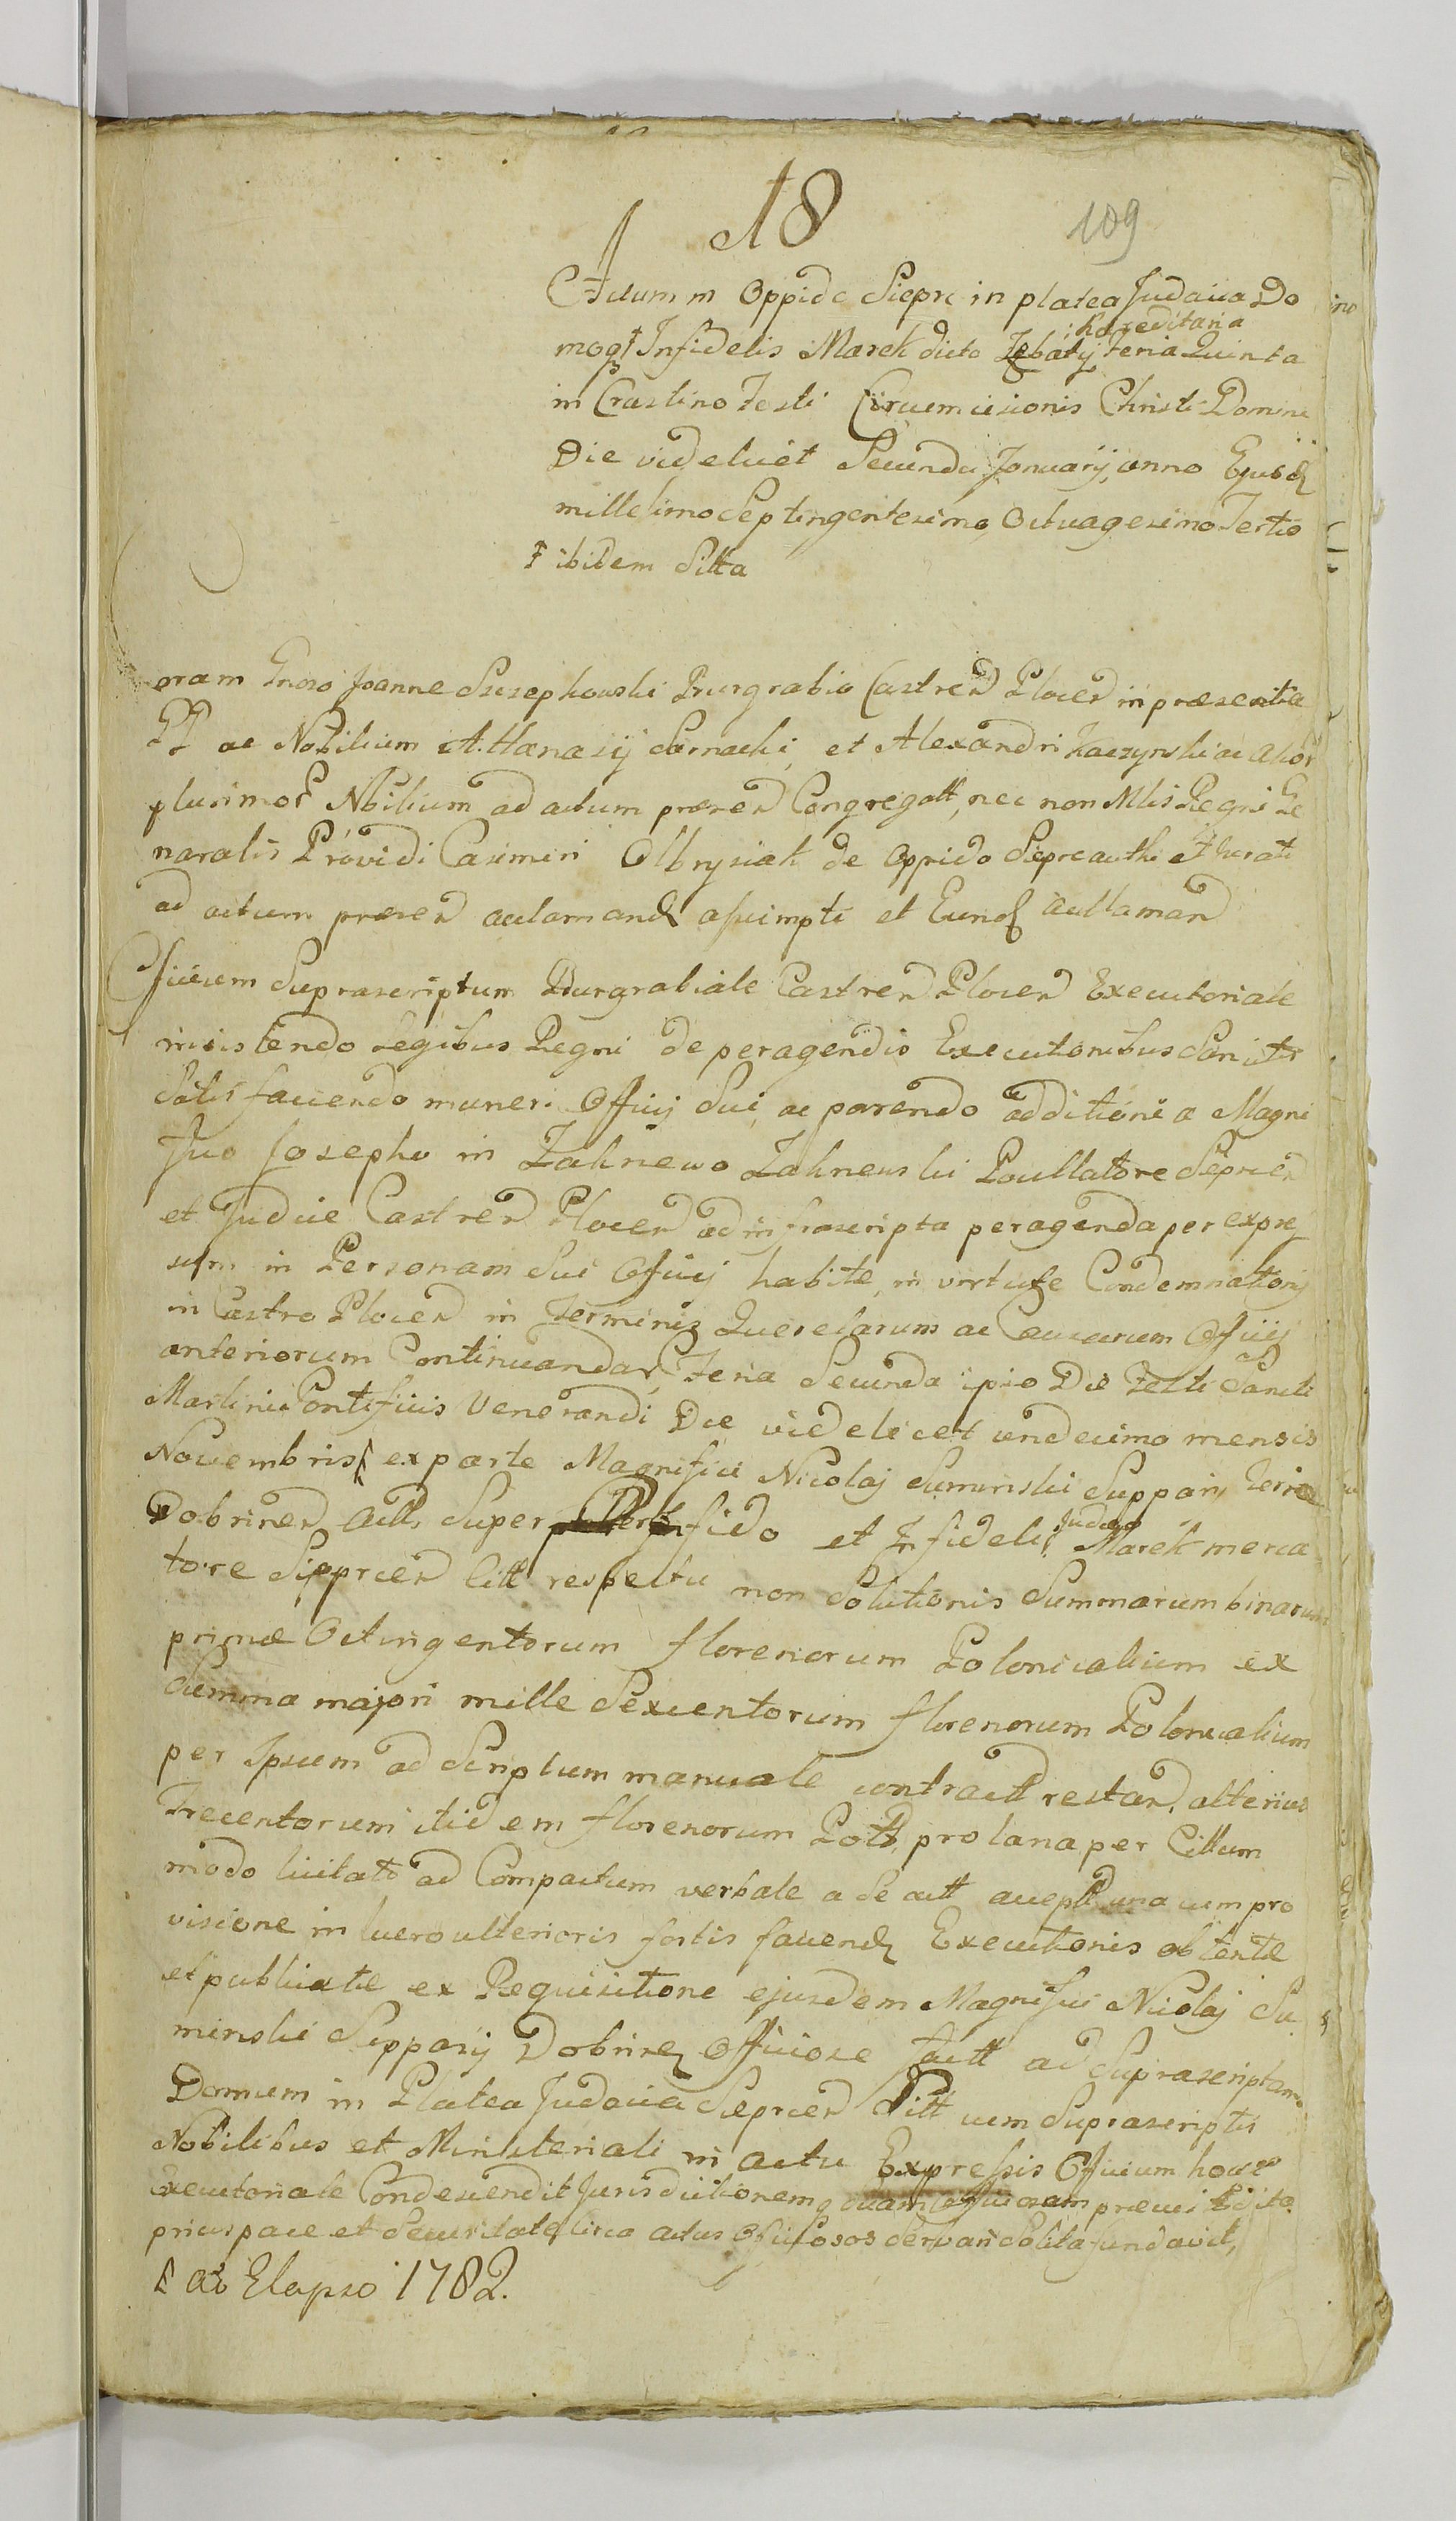 18
109
Actum in Oppido Siepre in platea Judaica Do
hæreditaria
moq₃ † Infidelis Marek dicto Feria Quinta
in Crastino Festi Circumcisionis Christi Domini
Die videlicet Secunda Januarij, anno Ejusd
millesimo Septingentesimo, Octuagesimo Tertio
† ibidem Sitta
oram Gnoso Joanne Szczepkowski Burgrabio Castren Plocen in præsentia
PP ac Nobilium Athanasij Sarnacki, et Alexandri Kaczynski ac alior
plurimor Nbilium ad actum præsen Congregatt, nec non Mlis Regni Ge
naralis Providi Casimiri Olbrysiak de Oppido Siepre authi et Jurati
ad actum præsen aclamand assumpti et Eund acllaman
Officium Suprascriptum Burgrabiale Castren Plocen Executoriale
insistendo Legibus Regni de peragendis Executionibus Sancitis
Satisfaciendo muneri Officij Sui, ac parendo additioni a Magni
fico Josepho in Zaknewo Zaknewski Pocillatore Sieprcen
et Judice Castren Plocen ad infrascripta peragenda per expres
sum in Personam Sui Officij habite, in virtute Condemnationis
in Castro Plocen in Terminis Querelarum ac Causarum Officij
anteriorum Continuandar, Feria Secunda ipso Die Festi Sancti
Martini Pontificis Venerandi Die videlicet undecima mensis
Novembris ex parte Magnifici Nicolaj Suminski Suppari, Terræ
Judæo
Dobrinen Act, Super perfido et Infideli Marek merca
tore Sieprcen Citt respectu non Solutionis Summarum binarum
primæ Octingentorum florenorum Polonicalium ex
Summa majori mille Sexcentorum florenorum Polonicalium
per Ipsum ad Scriptum manuale contractt restan, alterius
Trecentorum itidem florenorum Poll, pro lana per Cittum
modo licitato ad Compactum verbale a se actt accept una cum pro
visione in lucro ulterioris sortis faciend Executionis obtentæ
et publicatæ ex Requisitione ejusdem Magnifici Nicolaj Su
minski Supparij Dobrinen Officiose factt ad Suprascriptam
Domum in Platea Judaica Sieprcen Sitt cum Suprascriptis
Nobilibus et Ministeriali in actu Expressis Officium hocce
Executoriale Condescendit Jurisdictionemq suam Officiosam prævi Edita
prius pace et Securitate circa actus Officiosos Servari solita fundavit,
Elapso 1782.